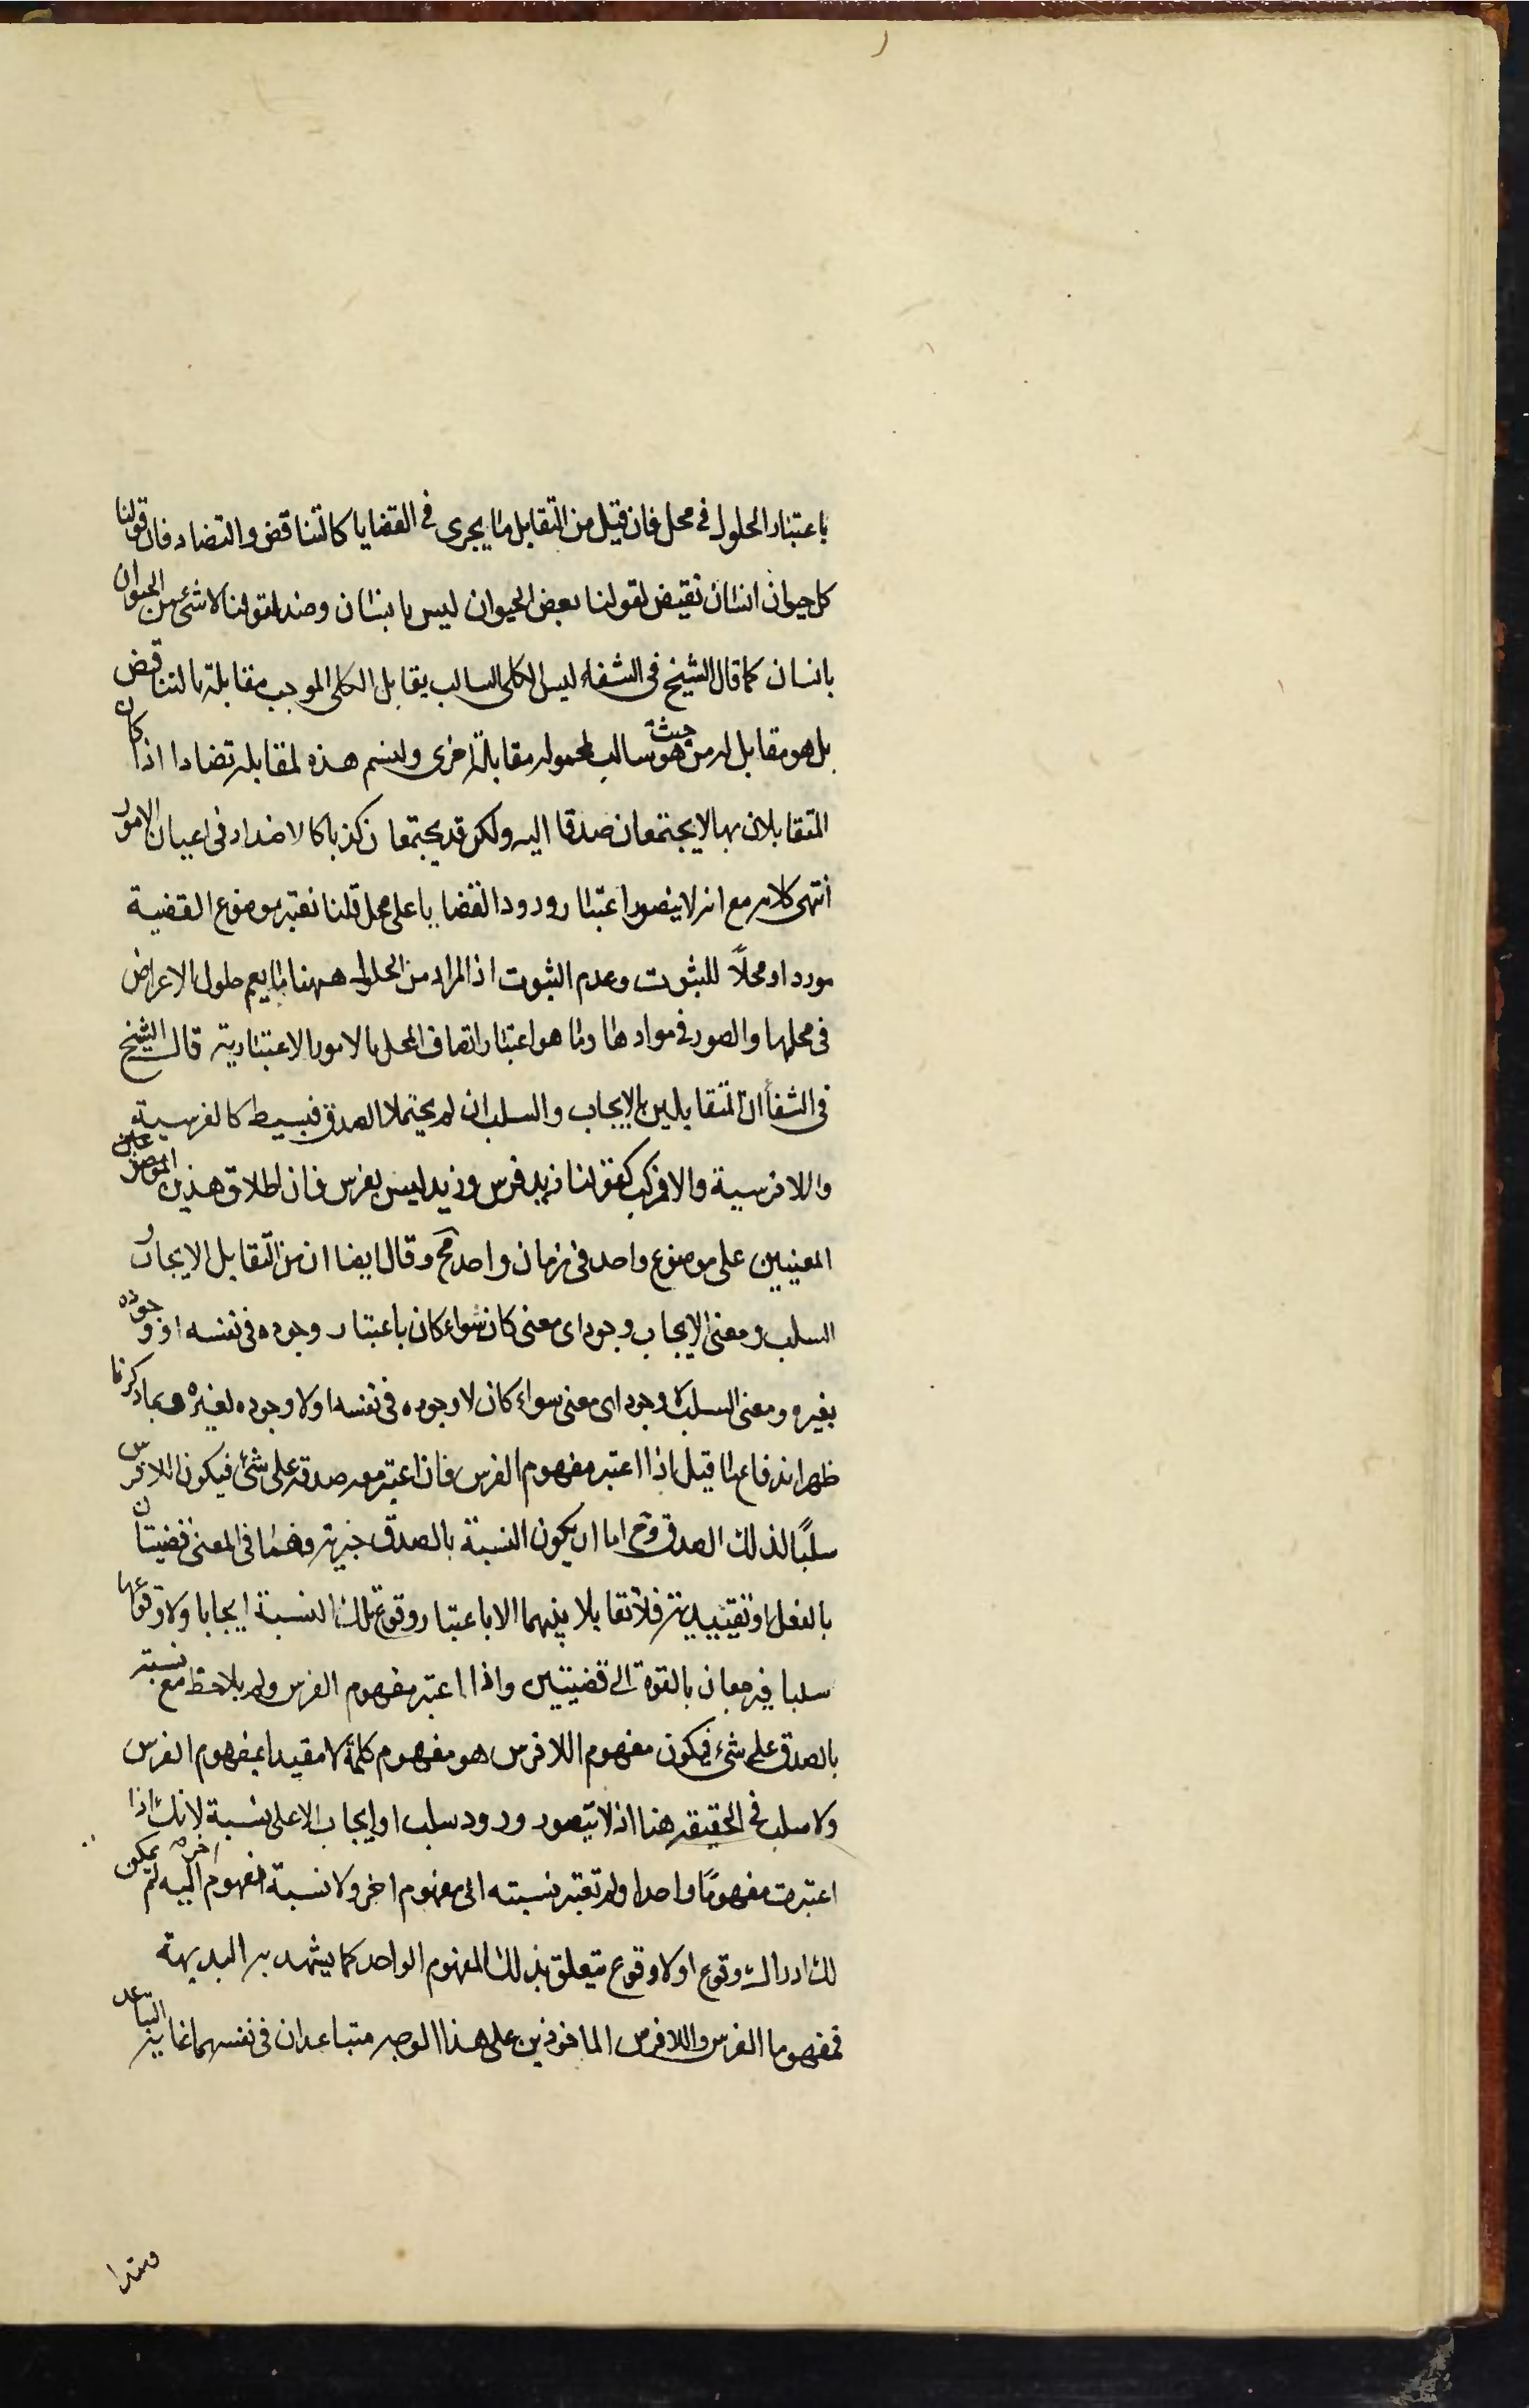 باعتبار الحلول في محل فان قيل من التقابل ما يجرى في القضايا كالتناقض والتضاد فان قولنا
كل حيوان انسان نقيض لقولنا بعض الحيوان ليس بانسان وضد لقولنا لا شئ من الحيوان
بانسان كما قال الشيخ في الشفاء ليس الكلى السالب يقابل الكلى الموجب مقابلة بالتناقض
بل هو مقابل له من حيث هو سالب لمحموله مقابلة اخرى ولنسم هذه المقابلة تضادا اذا كان
المتقابلان بها لا يجتمعان صدقا اليه ولكن قد يجتمعان كذبا كالاضداد في اعيان الامور
انتهى كلامه مع انه لا يتصور اعتبار ورود القضايا على محل قلنا نعتبر موضوع القضية
موردا ومحلًا للثبوت وعدم الثبوت اذ المراد من الحلول ههنا ما يعم حلول الاعراض
في محلها والصور في موادها وما هو اعتبار اتصاف المحل بالامور الاعتبارية قال الشيخ
في الشفا ان المتقابلين بالايجاب والسلب ان لم يحتملا الصدق فبسيط كالفرسية
واللافرسية والا فمركب كقولنا زيد فرس وزيد ليس بفرس فان اطلاق هذين
المعنيين على موضوع واحد في زمان واحد مح وقال ايضا ان من التقابل الايجاب و
السلب ومعنى الايجاب وجود اى معنى كان سواء كان باعتبار وجوده في نفسه او وجوده
بغيره ومعنى السلب لا وجود اى معنى سواء كان لا وجوده في نفسه او لا وجوده لغيره وبما ذكرنا
ظهر اندفاع ما قيل اذا اعتبر مفهوم الفرس فان اعتبر معه صدقه على شئ فيكون اللافرس
سلبًا لذلك الصدق وح اما ان يكون النسبة بالصدق خبرية وهما في المعنى قضيتان
بالفعل او تقييدية فلا تقابلا بينهما الا باعتبار وقوع تلك النسبة ايجابا ولا وقوعها
سلبا فيرجعان بالقوة الى قضيتين واذا اعتبر مفهوم الفرس ولم يلاحظ مع نسبته
بالصدق على شئ فيكون مفهوم اللافرس هو مفهوم كلمة لا مقيدا بمفهوم الفرس
ولا سلب في الحقيقة هنا اذ لا يتصور ورود سلب او ايجاب الا على نسبة لانك اذا
اعتبرت مفهومًا واحدا ولم تعتبر نسبته الى مفهوم اخر ولا نسبة مفهوم اخر اليه لم يمكن
لك ادراك وقوع او لا وقوع متعلق بذلك المفهوم الواحد كما يشهد به البديهة
فمفهوما الفرس واللافرس الماخوذين على هذا الوجه متباعدان في نفسهما غاية التباعد